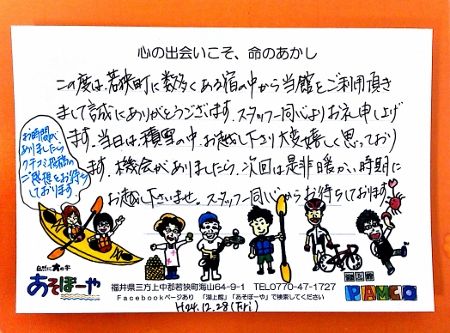 心の出会いこそ、命のあかし
この度は、若狭町に数多くある宿の中から当館をご利用頂き
まして誠にありがとうございます。スタッフ一同心よりお礼申し上げ
ます。当日は、積雪の中、お越し下さり大変嬉しく思っており
ます。機会がありましたら、次回は是非暖かい時期に
お越し下さいませ。スタッフ一同心からお待ちしております。
お時間が
ありましたら
クチコミ投稿の
ご感想をお待ち
しております
あそぼーや
湯上館
PAMCO
福井県三方上中郡若狭町海山64-9-1 TEL0770-47-1727
Facebookページあり 「湖上館」「あそぼーや」で検索してください
H24.12.28(Fri)